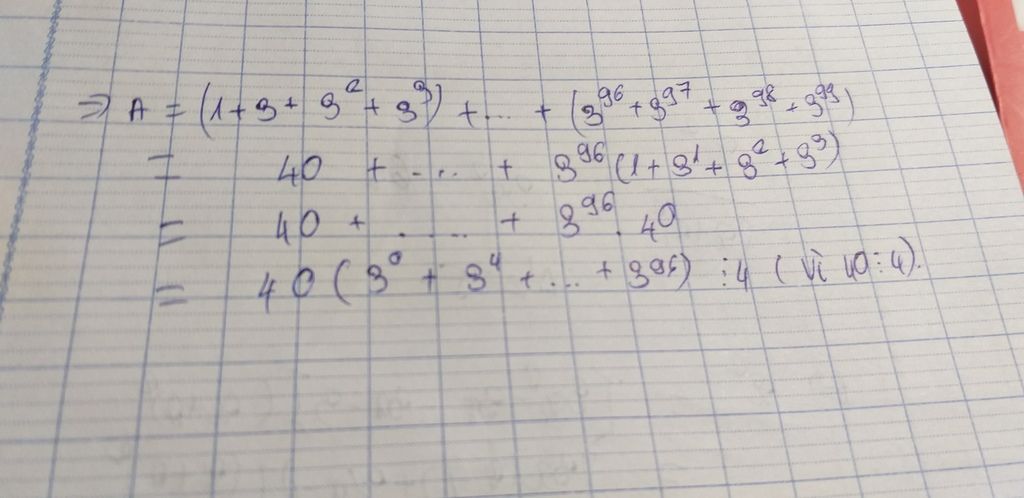 ⇒ A = (1 + 3 + 3² + 3³) + ... + (3⁹⁶ + 3⁹⁷ + 3⁹⁸ + 3⁹⁹)
= 40 + ... + 3⁹⁶ (1 + 3¹ + 3² + 3³)
= 40 + ..... + 3⁹⁶. 40
= 40 (3⁰ + 3⁴ + ... + 3⁹⁶) ⋮ 4 ( Vì 40 ⋮ 4).